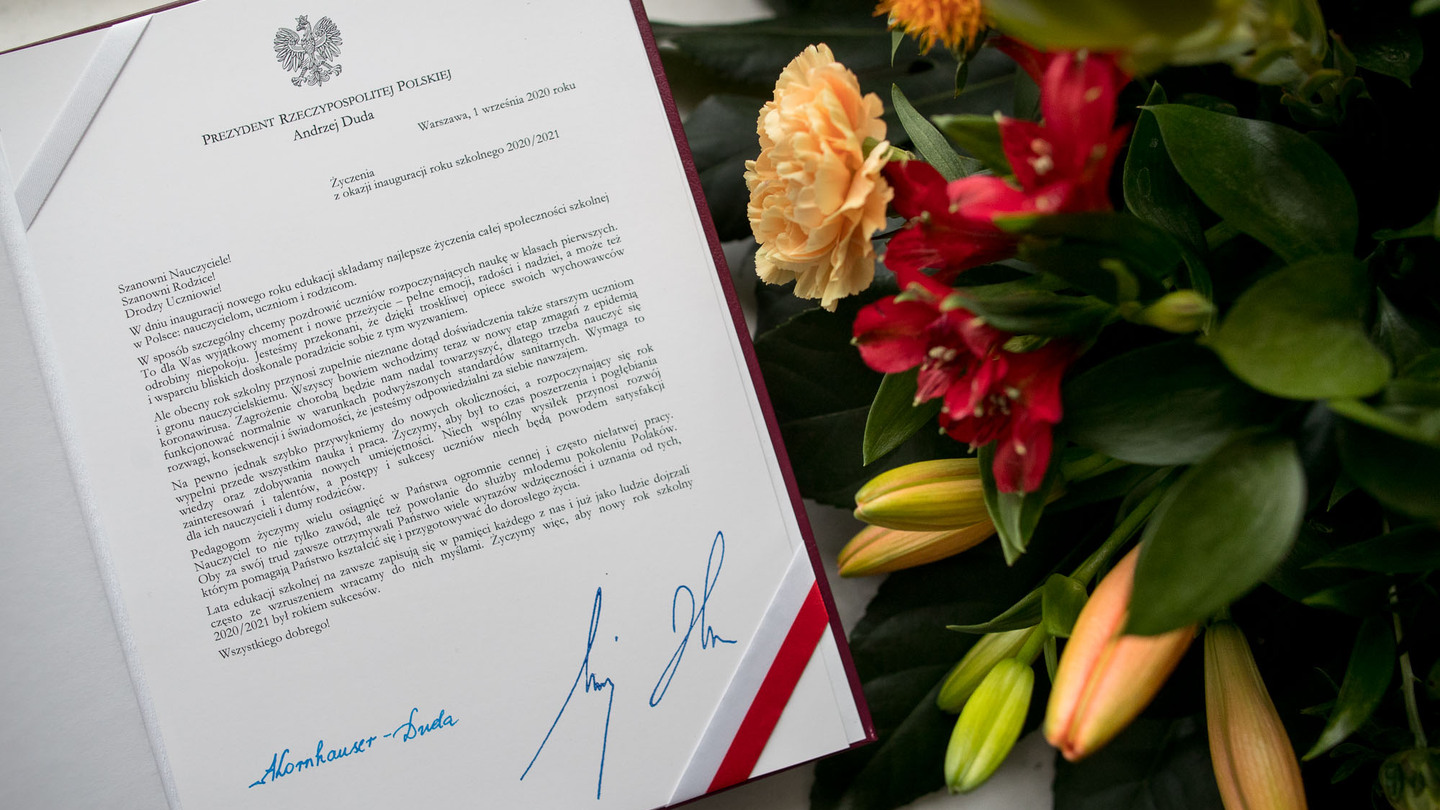 PREZYDENT RZECZYPOSPOLITEJ POLSKIEJ
Andrzej Duda
Warszawa, 1 września 2020 roku
Życzenia
z okazji inauguracji roku szkolnego 2020/2021
Szanowni Nauczyciele!
Szanowni Rodzice!
Drodzy Uczniowie!
W dniu inauguracji nowego roku edukacji składamy najlepsze życzenia całej społeczności szkolnej
w Polsce: nauczycielom, uczniom i rodzicom.
W sposób szczególny chcemy pozdrowić uczniów rozpoczynających naukę w klasach pierwszych.
To dla Was wyjątkowy moment i nowe przeżycie – pełne emocji, radości i nadziei, a może też
odrobiny niepokoju. Jesteśmy przekonani, że dzięki troskliwej opiece swoich wychowawców
i wsparciu bliskich doskonale poradzicie sobie z tym wyzwaniem.
Ale obecny rok szkolny przynosi zupełnie nieznane dotąd doświadczenia także starszym uczniom
i gronu nauczycielskiemu. Wszyscy bowiem wchodzimy teraz w nowy etap zmagań z epidemią
koronawirusa. Zagrożenie chorobą będzie nam nadal towarzyszyć, dlatego trzeba nauczyć się
funkcjonować normalnie w warunkach podwyższonych standardów sanitarnych. Wymaga to
rozwagi, konsekwencji i świadomości, że jesteśmy odpowiedzialni za siebie nawzajem.
Na pewno jednak szybko przywykniemy do nowych okoliczności, a rozpoczynający się rok
wypełni przede wszystkim nauka i praca. Życzymy, aby był to czas poszerzenia i pogłębiania
wiedzy oraz zdobywania nowych umiejętności. Niech wspólny wysiłek przynosi rozwój
zainteresowań i talentów, a postępy i sukcesy uczniów niech będą powodem satysfakcji
dla ich nauczycieli i dumy rodziców.
Pedagogom życzymy wielu osiągnięć w Państwa ogromnie cennej i często niełatwej pracy.
Nauczyciel to nie tylko zawód, ale też powołanie do służby młodemu pokoleniu Polaków.
Oby za swój trud zawsze otrzymywali Państwo wiele wyrazów wdzięczności i uznania od tych,
którym pomagają Państwo kształcić się i przygotowywać do dorosłego życia.
Lata edukacji szkolnej na zawsze zapisują się w pamięci każdego z nas i już jako ludzie dojrzali
często ze wzruszeniem wracamy do nich myślami. Życzymy więc, aby nowy rok szkolny
2020/2021 był rokiem sukcesów.
Wszystkiego dobrego!
AKornhauser-Duda